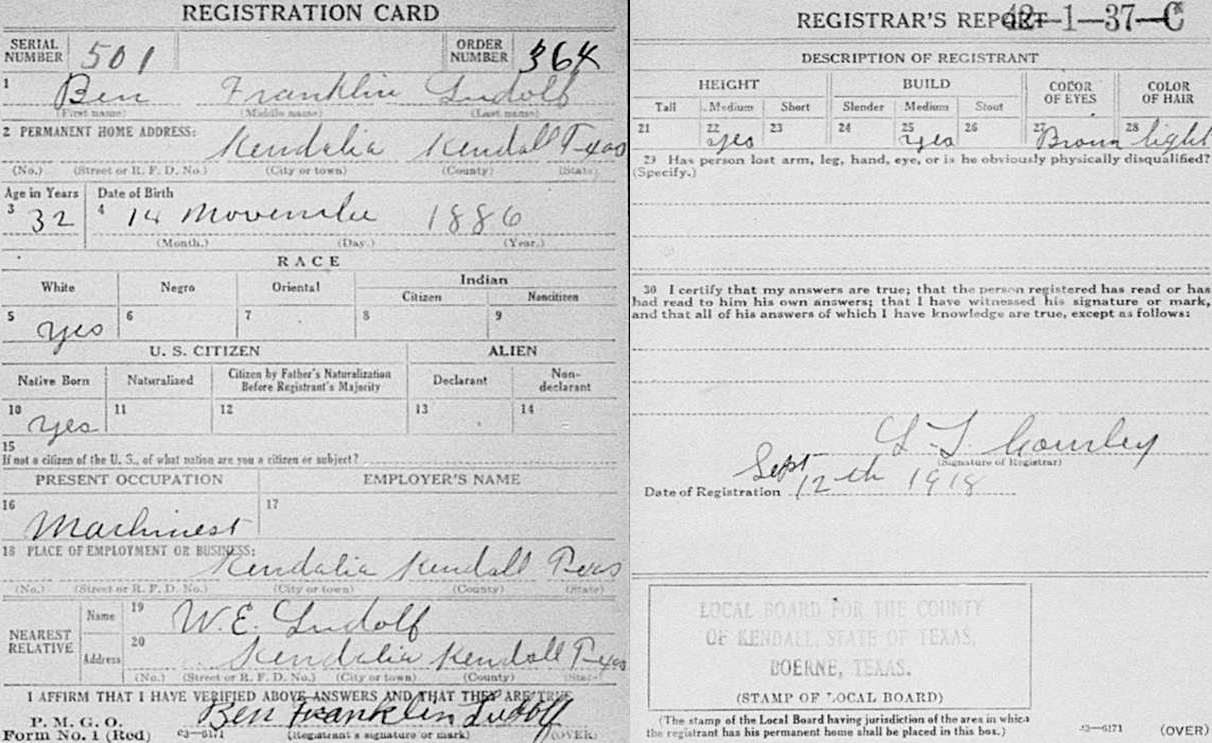 REGISTRATION CARD
SERIAL NUMBER 501 ORDER NUMBER 364
1 Ben Franklin Ludolf
(First name) (Middle name) (Last name)
2 PERMANENT HOME ADDRESS: Kendalia Kendall Texas
(No.) (Street or R. F. D. No.) (City or town) (County) (State)
Age in Years Date of Birth
3 32 4 14 November 1886
(Month.) (Day.) (Year.)
RACE
White Negro Oriental Indian
Citizen Noncitizen
5 yes 6 7 8 9
U. S. CITIZEN ALIEN
Native Born Naturalized Citizen by Father's Naturalization Before Registrant's Majority Declarant Non-declarant
10 yes 11 12 13 14
15
If not a citizen of the U. S., of what nation are you a citizen or subject?
PRESENT OCCUPATION EMPLOYER'S NAME
16 Machinest 17
18 PLACE OF EMPLOYMENT OR BUSINESS:
Kendalia Kendall Texas
(No.) (Street or R. F. D. No.) (City or town) (County) (State)
NEAREST RELATIVE Name 19 W. E. Ludolf
Address 20 Kendalia Kendall Texas
(No.) (Street or R. F. D. No.) (City or town) (County) (State)
I AFFIRM THAT I HAVE VERIFIED ABOVE ANSWERS AND THAT THEY ARE TRUE
P. M. G. O.
Form No. 1 (Red) 03—6171 Ben Franklin Ludolf
(Registrant's signature or mark) (OVER)
REGISTRAR'S REPORT 42—1—37—C
DESCRIPTION OF REGISTRANT
HEIGHT BUILD COLOR OF EYES COLOR OF HAIR
Tall Medium Short Slender Medium Stout
21 22 yes 23 24 25 yes 26 27 Brown 28 light
29 Has person lost arm, leg, hand, eye, or is he obviously physically disqualified?
(Specify.)
30 I certify that my answers are true; that the person registered has read or has
had read to him his own answers; that I have witnessed his signature or mark,
and that all of his answers of which I have knowledge are true, except as follows:
L. L. Gourley
(Signature of Registrar)
Date of Registration Sept 12th 1918
LOCAL BOARD FOR THE COUNTY
OF KENDALL, STATE OF TEXAS,
BOERNE, TEXAS.
(STAMP OF LOCAL BOARD)
(The stamp of the Local Board having jurisdiction of the area in which
the registrant has his permanent home shall be placed in this box.)
03—6171 (OVER)